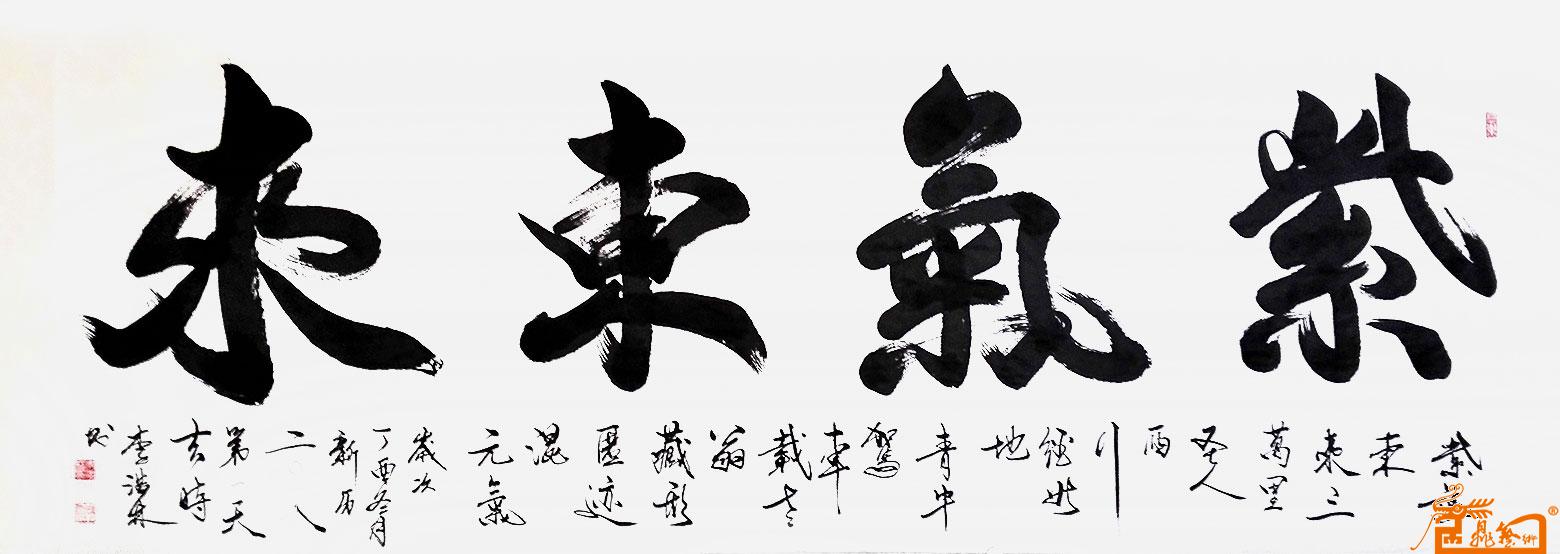 紫氣東來
紫氣
东
来三
萬里
圣人
西
行
经此
地
青牛
駕
車
載老
翁
藏形
匿迹
混
元氣
歲次
丁酉冬月
新历
二〇一八
第一天
吉時
李